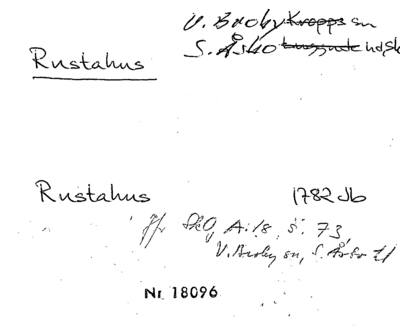 V. Broby Kropps sn
S. Åsbo Luggude hd, Sk
Rustahus
Rustahus 1782 Jb
Jfr SkO, A:18, s. 73,
V. Broby sn, S. Åsbo
Nr 18096